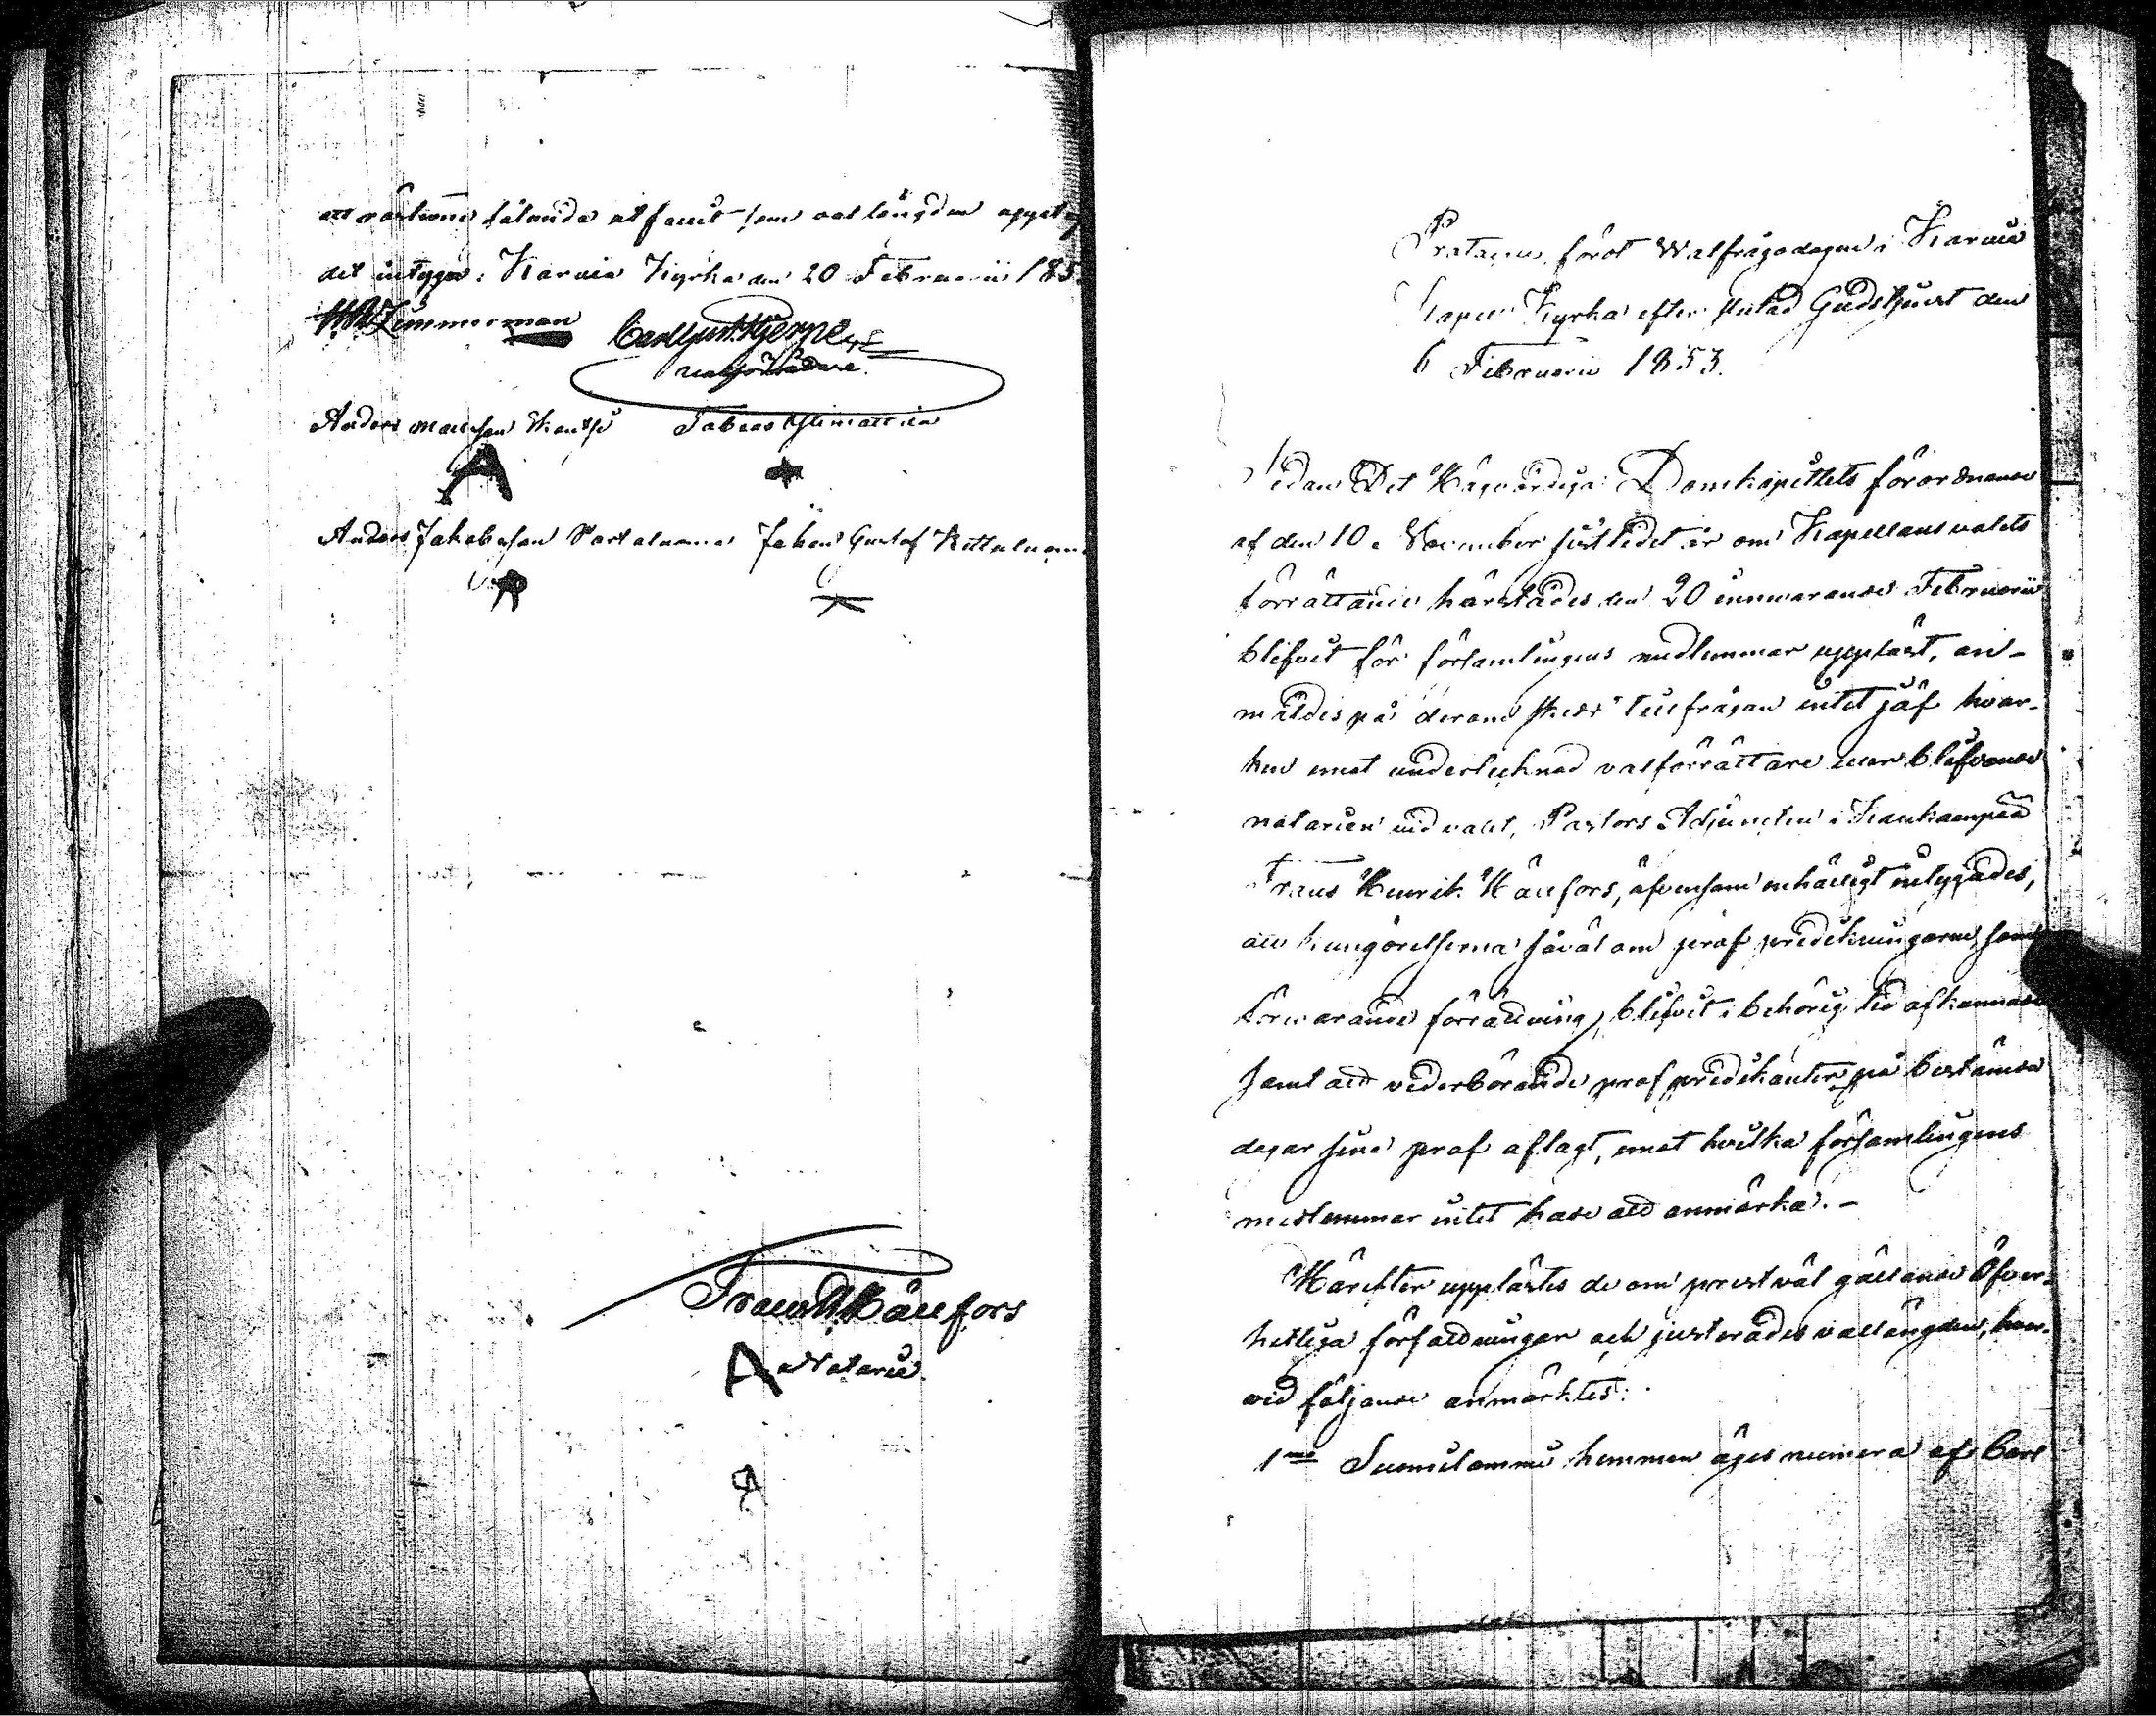 att rösterne sålunda utfallit som vallängden
det intygar: Karvia Kyrka den 20 Februarii 185
Zimmerman Carl Gust. Hjerpe
valförrättare.
Anders Tobias Ylimattila
Anders Jakobsson Johan Gustaf
Frans H. Hällfors
Notarie.
Protocoll, fördt Walfrågodagen i Karvia
Kapell Kyrka efter slutad Gudstjenst den
6 Februarii 1853.
Sedan Det Högvördiga Domkapitlets förordnande
af den 10 November sistledet år om Kapellansvalets
förrättande härstädes den 20 innevarande Februarii
blifvit för församlingens medlemmar uppläst, an-
mäldes på derom skedd tillfrågan intet jäf hvar-
ken emot undertecknad valförrättare eller blifvande
notarien vid valet, Pastors Adjuncten i Kankaanpää
Frans Henrik Hällfors, äfvensom enhälligt intygades,
att kungörelserna såväl om prof predikningarne, som
förevarande förrättning, blifvit i behörig tid afkunnade
samt att vederbörande prof predikanter på bestämda
dagar sina prof aflagt, emot hvilka församlingens
medlemmar intet hade att anmärka. -
Härefter upplästes de om prestval gällande Öfver-
hetliga författningar och justerades vallängden, hvar-
vid följande anmärktes:
1mo hemman äges numera af Carl